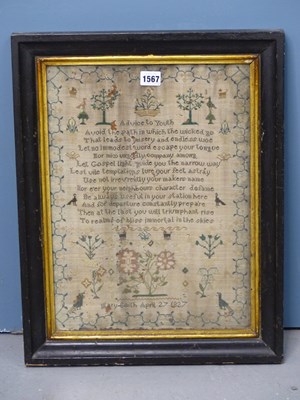 1567
Advice to Youth
Avoid the path in which the wicked go
That leads to misery and endless woe
Let no immodest word escape your tongue
Nor
Let Gospel light guide you the narrow way
Lest vile temptations lure your feet astray
Use not irreverently your makers name
Nor ever your neighbours character defame
Be always useful in your station here
And for departure constantly prepare
Then at the last you will triumphant rise
To realms of bliss immortal in the skies
April 27 1827